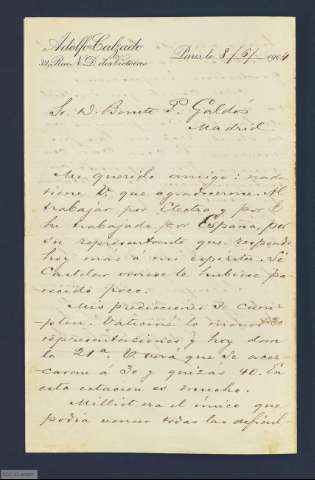 Adolfo Calzado
32, Rue N. D. des Victoires
Paris, le 8/6/1904
Sr. D. Benito P. Galdós
Madrid
Mi querido amigo: nada
tiene V. que agradecerme. Al
trabajar por Electra y por V.
he trabajado por España, por
su representante que responde
hoy mas á mi espíritu. Si
Castelar viviese le hubiera pa-
recido poco.
Mis predicciones se cum-
plen. Vaticiné lo menos 30
representaciones y hoy dan
la 21ª. V. verá que se acer-
caran á 30 y quizas 40. En
esta estacion es mucho.
Milliet era el único que
podia vencer todas las dificul-